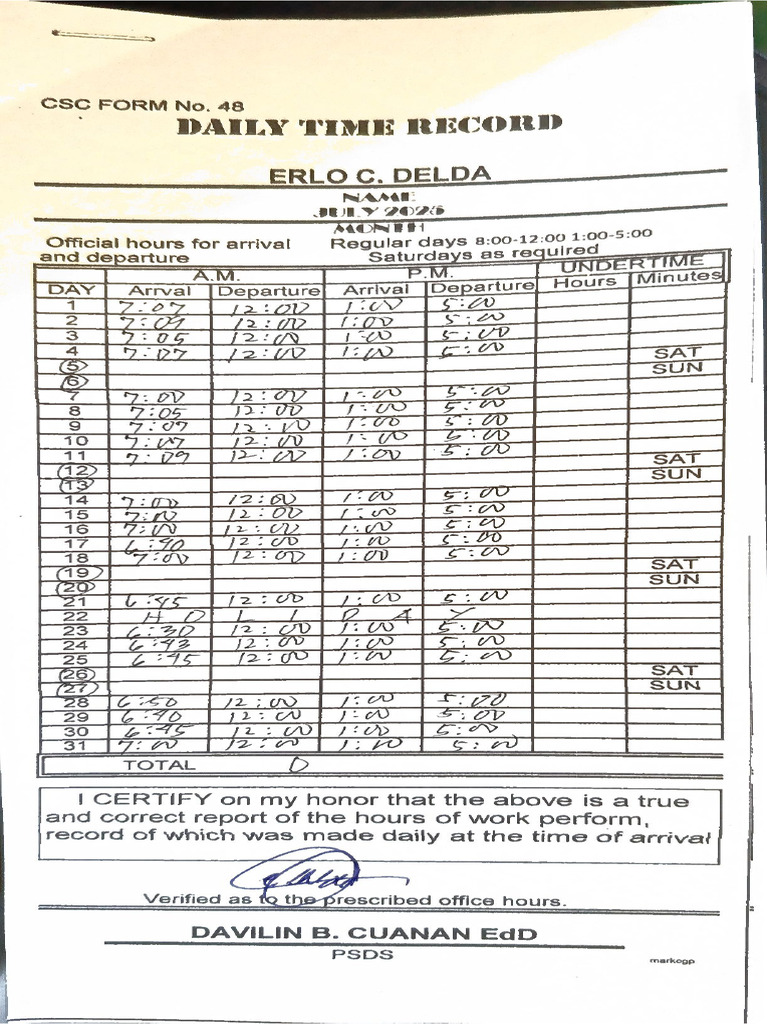 CSC FORM No. 48
DAILY TIME RECORD
ERLO C. DELDA
NAME
JULY 2025
MONTH
Official hours for arrival and departure
Regular days 8:00-12:00 1:00-5:00
Saturdays as required
A.M. P.M. UNDERTIME
DAY Arrval Departure Arrival Departure Hours Minutes
1 7:07 12:00 1:00 5:00
2 7:09 12:00 1:00 5:00
3 7:05 12:00 1:00 5:00
4 7:07 12:00 1:00 5:00 SAT
5 SUN
6
7 7:00 12:00 1:00 5:00
8 7:05 12:00 1:00 5:00
9 7:07 12:10 1:00 5:00
10 7:07 12:00 1:00 5:00
11 7:09 12:00 1:00 5:00 SAT
12 SUN
13
14 7:00 12:00 1:00 5:00
15 7:00 12:00 1:00 5:00
16 7:00 12:00 1:00 5:00
17 6:40 12:00 1:00 5:00
18 7:00 12:00 1:00 5:00 SAT
19 SUN
20
21 6:45 12:00 1:00 5:00
22 H O L I D A Y
23 6:30 12:00 1:00 5:00
24 6:43 12:00 1:00 5:00
25 6:45 12:00 1:00 5:00 SAT
26 SUN
27
28 6:50 12:00 1:00 5:00
29 6:40 12:00 1:00 5:00
30 6:45 12:00 1:00 5:00
31 7:00 12:00 1:00 5:00
TOTAL 0
I CERTIFY on my honor that the above is a true
and correct report of the hours of work perform,
record of which was made daily at the time of arrival
Verified as to the prescribed office hours.
DAVILIN B. CUANAN EdD
PSDS
markogp